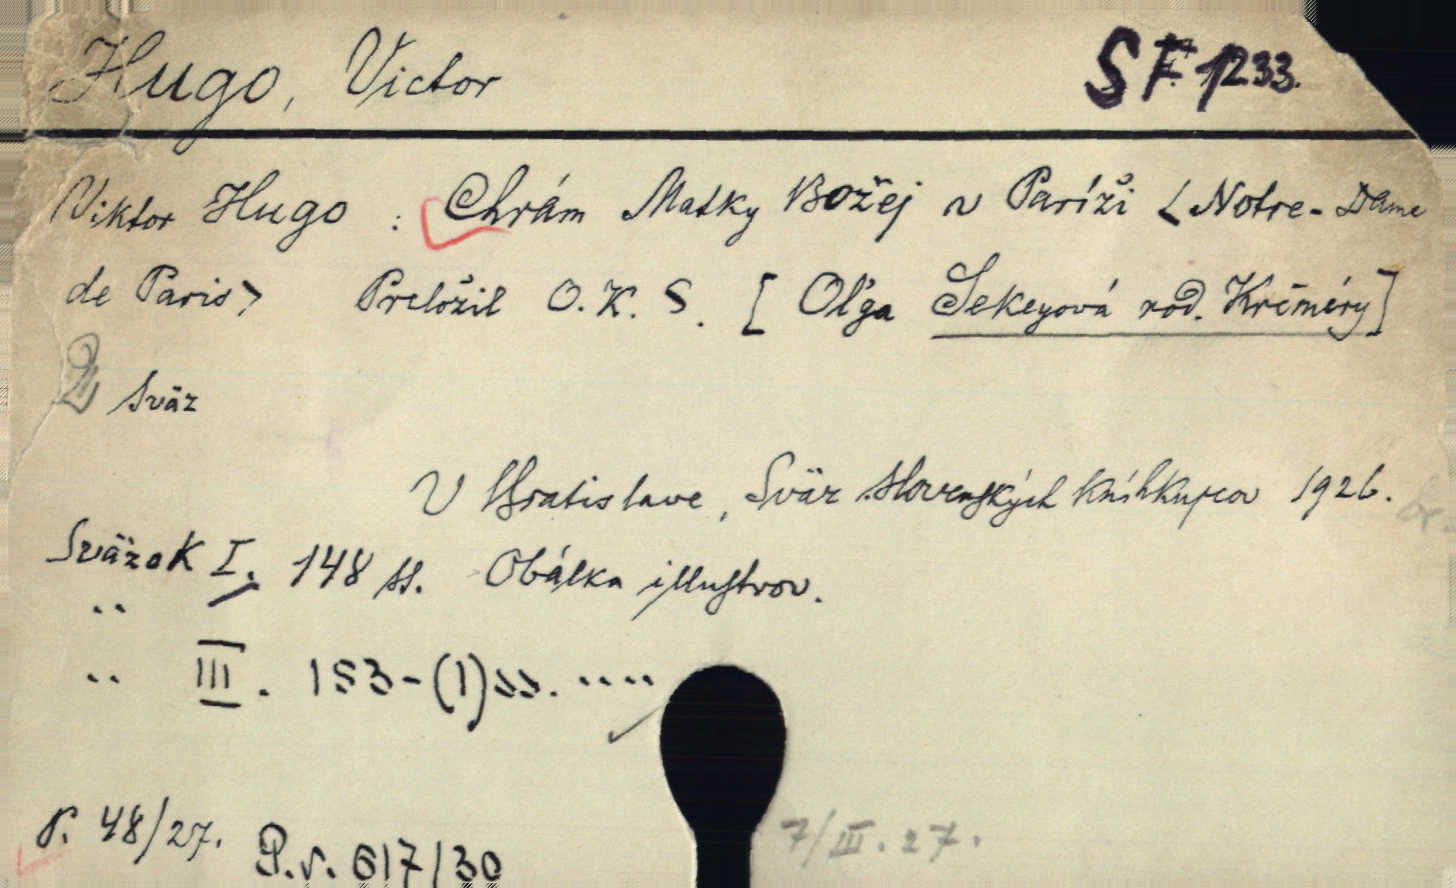 Hugo, Victor
SF 1233.
Viktor Hugo : Chrám Matky Božej v Paríži <Notre-Dame
de Paris> Preložil O. K. S. [Oľga Sekeyová rod. Krčméry]
sväz
V Bratislave, Sväz slovenských kníhkupcov 1926.
Sväzok I. 148 ss. Obálka illustrov.
" III. 153-(1) ss. " "
r. 48/27. P.r. 617/30
7/III. 27.